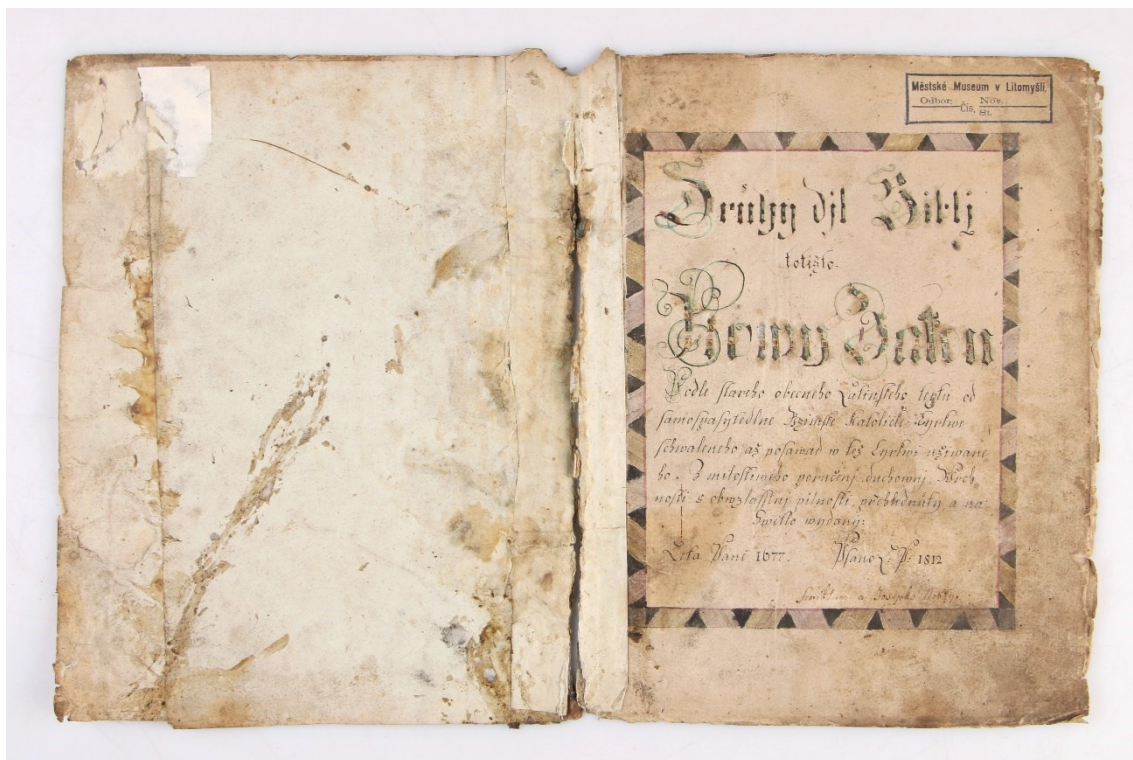 Městské Museum v Litomyšli.
Odbor: Nov.
Čís. St.
Druhy djl Biblj
totižto.
Nowy Zakon
Podle stareho obecneho Latinskeho textu od
samospasytedlne Rzimske Katolicke Cyrkwe
schwaleneho až posawad w též Cyrkwi užiwane
ho. Z milostiweho poručenj duchownj Wrch
nosti s obwzlasstnj pilnosti přehlednuty a na
Swětlo wydany:
Leta Paně 1677. Psano L. P. 1812